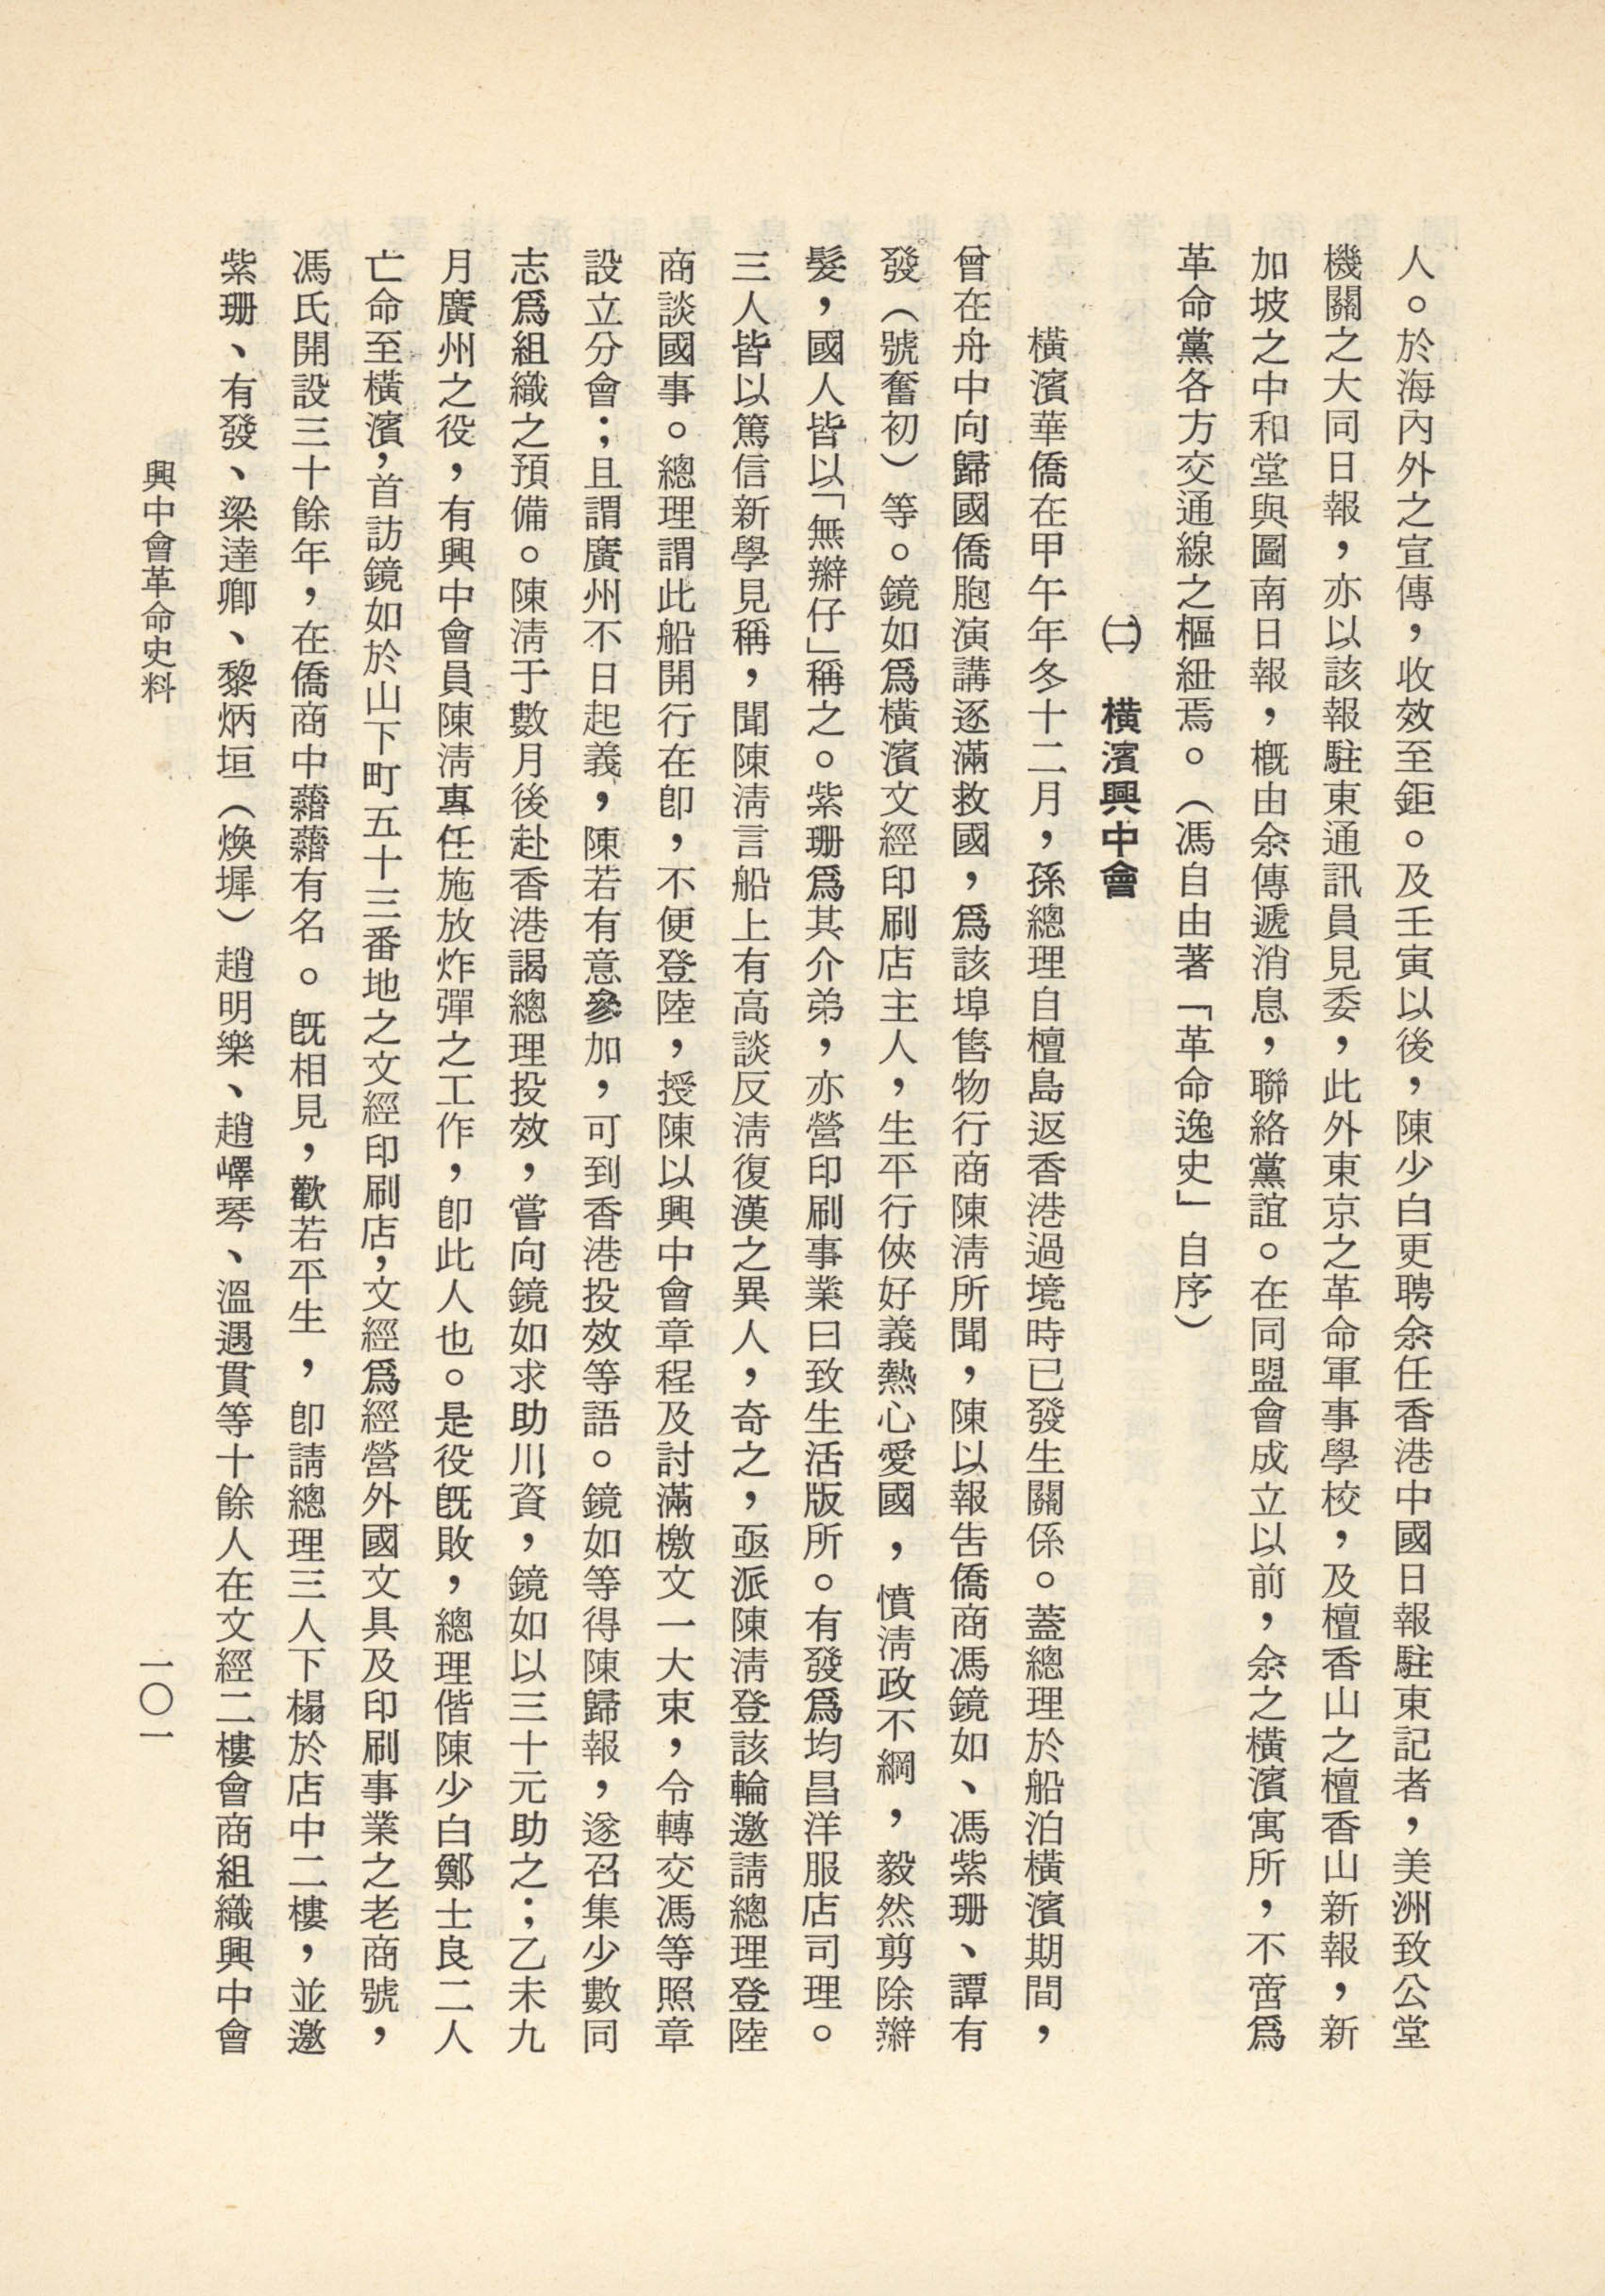 人。於海內外之宣傳，收效至鉅。及壬寅以後，陳少白更聘余任香港中國日報駐東記者，美洲致公堂
機關之大同日報，亦以該報駐東通訊員見委，此外東京之革命軍事學校，及檀香山之檀香山新報，新
加坡之中和堂與圖南日報，概由余傳遞消息，聯絡黨誼。在同盟會成立以前，余之橫濱寓所，不啻爲
革命黨各方交通線之樞紐焉。（馮自由著「革命逸史」自序）
㈡　橫濱興中會
橫濱華僑在甲午年冬十二月，孫總理自檀島返香港過境時已發生關係。蓋總理於船泊橫濱期間，
曾在舟中向歸國僑胞演講逐滿救國，爲該埠售物行商陳淸所聞，陳以報告僑商馮鏡如、馮紫珊、譚有
發（號奮初）等。鏡如爲橫濱文經印刷店主人，生平行俠好義熱心愛國，憤淸政不綱，毅然剪除辮
髮，國人皆以「無辮仔」稱之。紫珊爲其介弟，亦營印刷事業曰致生活版所。有發爲均昌洋服店司理。
三人皆以篤信新學見稱，聞陳淸言船上有高談反淸復漢之異人，奇之，亟派陳淸登該輪邀請總理登陸
商談國事。總理謂此船開行在卽，不便登陸，授陳以興中會章程及討滿檄文一大束，令轉交馮等照章
設立分會；且謂廣州不日起義，陳若有意參加，可到香港投效等語。鏡如等得陳歸報，遂召集少數同
志爲組織之預備。陳淸于數月後赴香港謁總理投效，嘗向鏡如求助川資，鏡如以三十元助之；乙未九
月廣州之役，有興中會員陳淸專任施放炸彈之工作，卽此人也。是役旣敗，總理偕陳少白鄭士良二人
亡命至橫濱，首訪鏡如於山下町五十三番地之文經印刷店，文經爲經營外國文具及印刷事業之老商號，
馮氏開設三十餘年，在僑商中藉藉有名。旣相見，歡若平生，卽請總理三人下榻於店中二樓，並邀
紫珊、有發、梁達卿、黎炳垣（煥墀）趙明樂、趙嶧琴、溫遇貫等十餘人在文經二樓會商組織興中會
興中會革命史料
一〇一